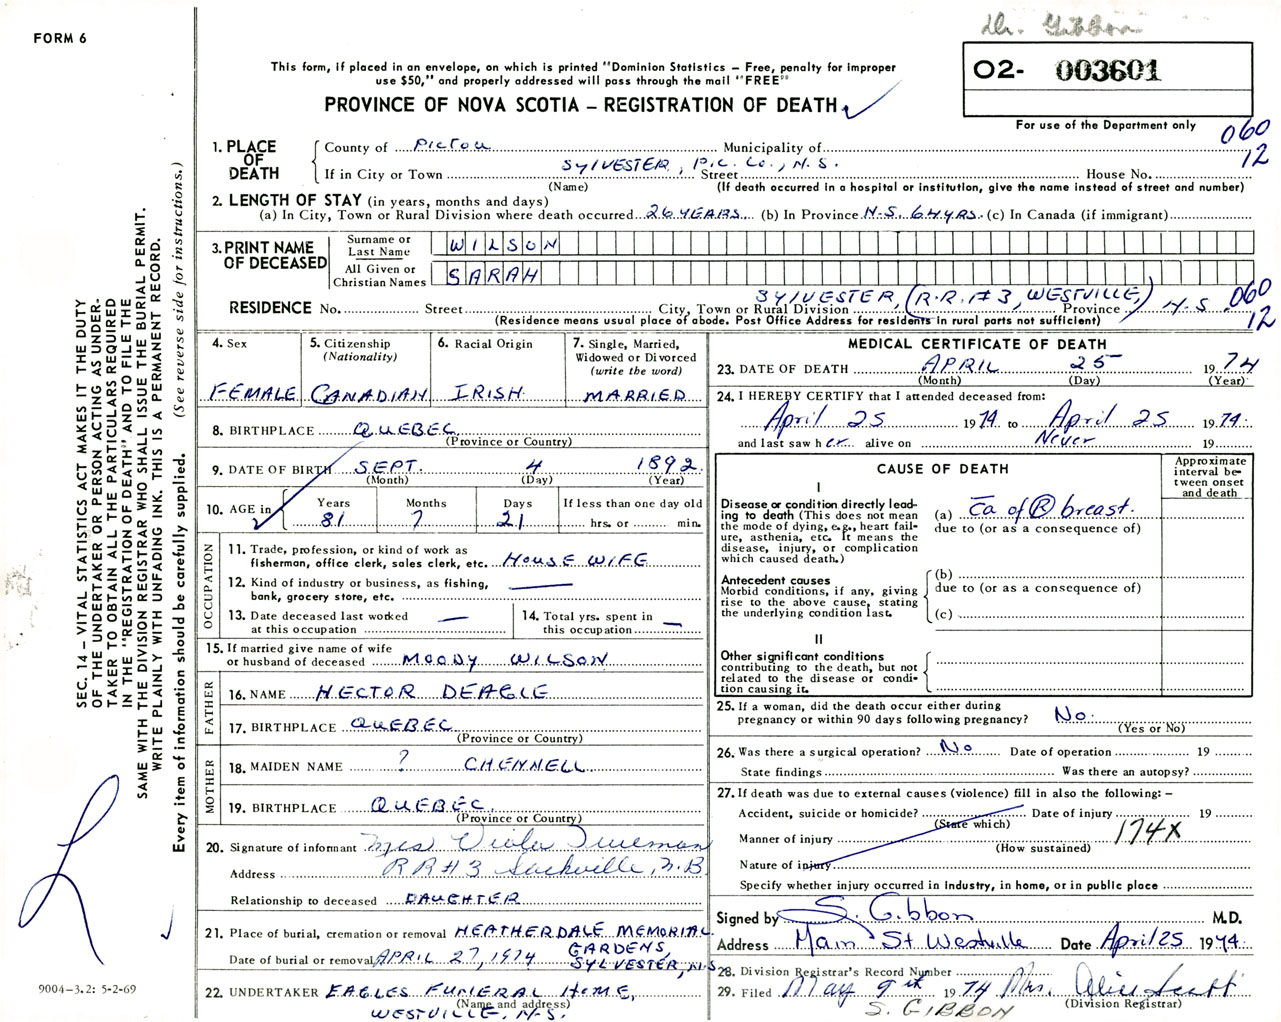 Dr. Gibbon
FORM 6
This form, if placed in an envelope, on which is printed "Dominion Statistics – Free, penalty for improper
use $50," and properly addressed will pass through the mail "FREE"
O2- 003601
PROVINCE OF NOVA SCOTIA – REGISTRATION OF DEATH
For use of the Department only
060
12
1. PLACE OF DEATH
County of Pictou Municipality of
If in City or Town SYLVESTER, P.C. Co., N.S. Street House No.
(Name) (If death occurred in a hospital or institution, give the name instead of street and number)
2. LENGTH OF STAY (in years, months and days)
(a) In City, Town or Rural Division where death occurred 26 YEARS (b) In Province N.S. 64 YRS. (c) In Canada (if immigrant)
3. PRINT NAME OF DECEASED
Surname or Last Name WILSON
All Given or Christian Names SARAH
RESIDENCE No. Street City, Town or Rural Division SYLVESTER, (R.R.#3, WESTVILLE,) Province N.S. 060
12
(Residence means usual place of abode. Post Office Address for residents in rural parts not sufficient)
4. Sex
FEMALE
5. Citizenship
(Nationality)
CANADIAN
6. Racial Origin
IRISH
7. Single, Married,
Widowed or Divorced
(write the word)
MARRIED
8. BIRTHPLACE QUEBEC
(Province or Country)
9. DATE OF BIRTH SEPT. 4 1892
(Month) (Day) (Year)
10. AGE in Years Months Days If less than one day old
81 7 21 hrs. or min.
OCCUPATION
11. Trade, profession, or kind of work as
fisherman, office clerk, sales clerk, etc. HOUSE WIFE
12. Kind of industry or business, as fishing,
bank, grocery store, etc. —
13. Date deceased last worked
at this occupation —
14. Total yrs. spent in
this occupation —
15. If married give name of wife
or husband of deceased MOODY WILSON
FATHER
16. NAME HECTOR DEAGLE
17. BIRTHPLACE QUEBEC
(Province or Country)
MOTHER
18. MAIDEN NAME ? CHENNELL
19. BIRTHPLACE QUEBEC
(Province or Country)
20. Signature of informant Mrs Viola Trueman
Address RR#3 Sackville, N.B.
Relationship to deceased DAUGHTER
21. Place of burial, cremation or removal HEATHERDALE MEMORIAL
GARDENS,
Date of burial or removal APRIL 27, 1974 SYLVESTER, N.S
22. UNDERTAKER EAGLES FUNERAL HOME,
(Name and address)
WESTVILLE, N.S.
MEDICAL CERTIFICATE OF DEATH
23. DATE OF DEATH APRIL 25 1974
(Month) (Day) (Year)
24. I HEREBY CERTIFY that I attended deceased from:
April 25 1974 to April 25 1974.
and last saw her alive on Never 19
CAUSE OF DEATH
Approximate
interval be-
tween onset
and death
I
Disease or condition directly lead-
ing to death (This does not mean
the mode of dying, e.g., heart fail-
ure, asthenia, etc. It means the
disease, injury, or complication
which caused death.)
(a) Ca of (R) breast.
due to (or as a consequence of)
Antecedent causes
Morbid conditions, if any, giving
rise to the above cause, stating
the underlying condition last.
(b)
due to (or as a consequence of)
(c)
II
Other significant conditions
contributing to the death, but not
related to the disease or condi-
tion causing it.
25. If a woman, did the death occur either during
pregnancy or within 90 days following pregnancy? No.
(Yes or No)
26. Was there a surgical operation? No Date of operation 19
State findings Was there an autopsy?
27. If death was due to external causes (violence) fill in also the following: –
Accident, suicide or homicide? Date of injury 19
(State which)
Manner of injury 174X
(How sustained)
Nature of injury
Specify whether injury occurred in industry, in home, or in public place
Signed by S. Gibbon M.D.
Address Main St Westville Date April 25 1974.
28. Division Registrar's Record Number
29. Filed May 9th 1974 Mrs. Alice Scott
(Division Registrar)
S. GIBBON
SEC. 14 – VITAL STATISTICS ACT MAKES IT THE DUTY
OF THE UNDERTAKER OR PERSON ACTING AS UNDER-
TAKER TO OBTAIN ALL THE PARTICULARS REQUIRED
IN THE "REGISTRATION OF DEATH" AND TO FILE THE
SAME WITH THE DIVISION REGISTRAR WHO SHALL ISSUE THE BURIAL PERMIT.
WRITE PLAINLY WITH UNFADING INK. THIS IS A PERMANENT RECORD.
Every item of information should be carefully supplied. (See reverse side for instructions.)
9004-3.2: 5-2-69